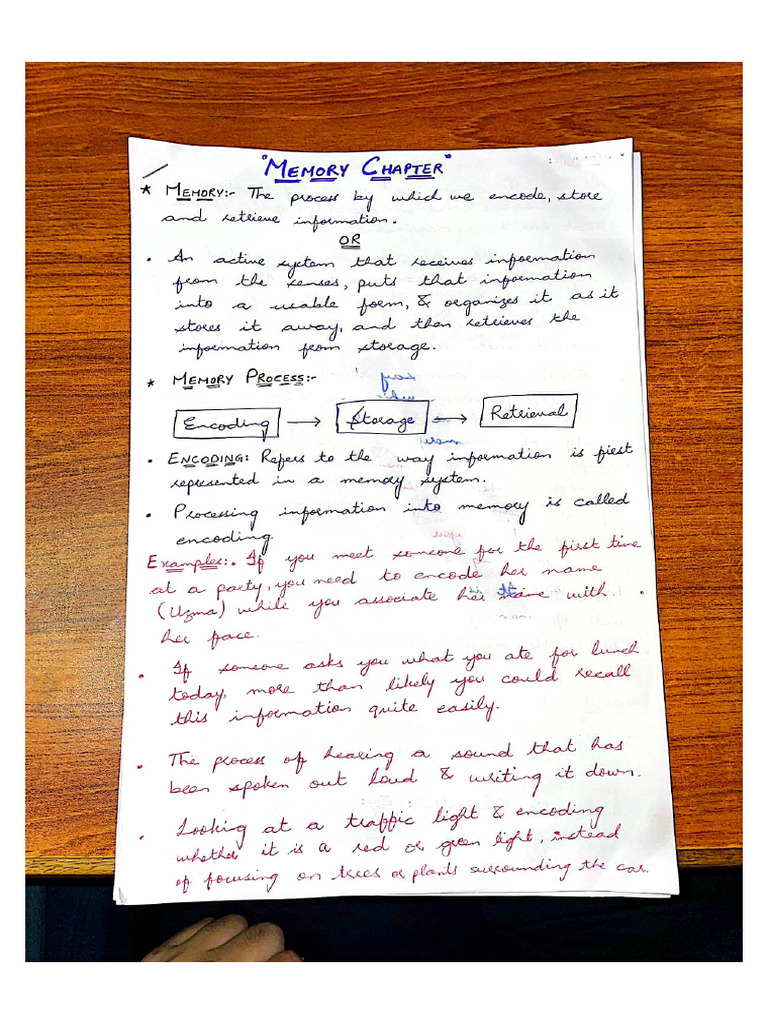 "MEMORY CHAPTER"
* MEMORY:- The process by which we encode, store
and retrieve information.
OR
• An active system that receives information
from the senses, puts that information
into a usable form, & organizes it as it
stores it away, and then retrieves the
information from storage.
* MEMORY PROCESS:-
Encoding → Storage → Retrieval
• ENCODING: Refers to the way information is first
represented in a memory system.
• Processing information into memory is called
encoding.
Examples:. If you meet someone for the first time
at a party, you need to encode her name
(Uzma) while you associate her name with
her face.
• If someone asks you what you ate for lunch
today, more than likely you could recall
this information quite easily.
• The process of hearing a sound that has
been spoken out loud & writing it down.
• Looking at a traffic light & encoding
whether it is a red or green light, instead
of focusing on trees or plants surrounding the car.